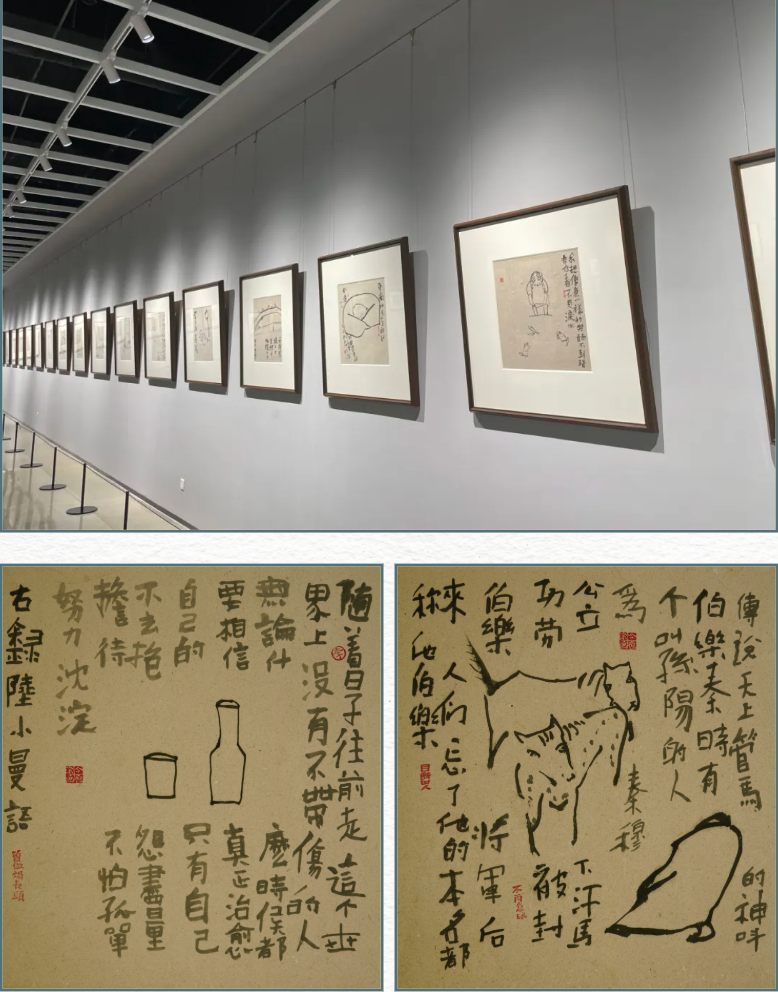 随着日子往前走這个世
界上没有不帶傷的人
無論什麼時侯都
要相信真正治愈
自己的只有自己
不去抱怨盡量
擔待不怕孤單
努力沈淀
右錄陸小曼語
傳說天上管馬的神叫
伯樂秦時有
个叫孫陽的人
為秦穆
公立下汗馬
功劳被封
伯樂將軍后
來人们忘了他的本名都
称他伯樂